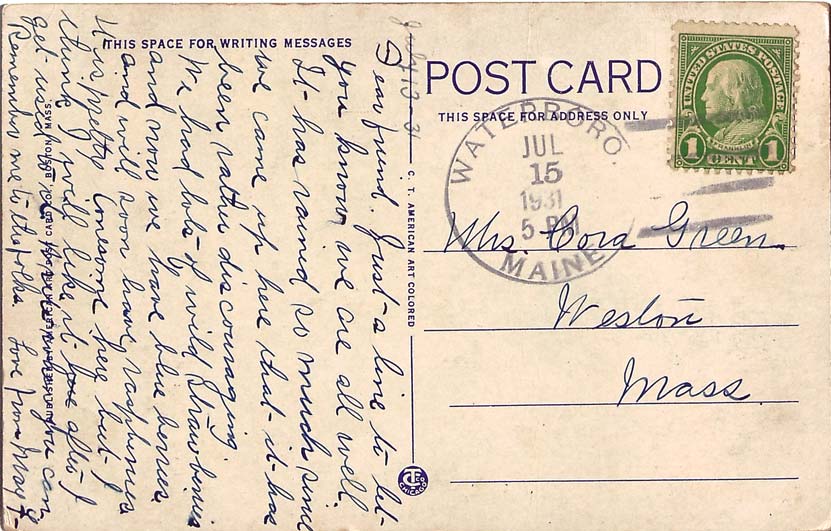 THIS SPACE FOR WRITING MESSAGES
July 13-31
Dear friend. Just a line to let
you know we are all well.
It has rained so much since
we came up here that it has
been rather discouraging
We had lots of wild strawberries
and now we have blue berries
and will soon have raspberries
It is pretty lonesome here but I
think I will like it after I
get used to it
Remember me to the folks Love from May
C. T. AMERICAN ART COLORED
POST CARD
THIS SPACE FOR ADDRESS ONLY
WATERBORO.
JUL
15
1931
5 PM
MAINE
UNITED STATES POSTAGE
FRANKLIN
1 CENT 1
Mrs. Cora Green
Weston
Mass.
CHICAGO